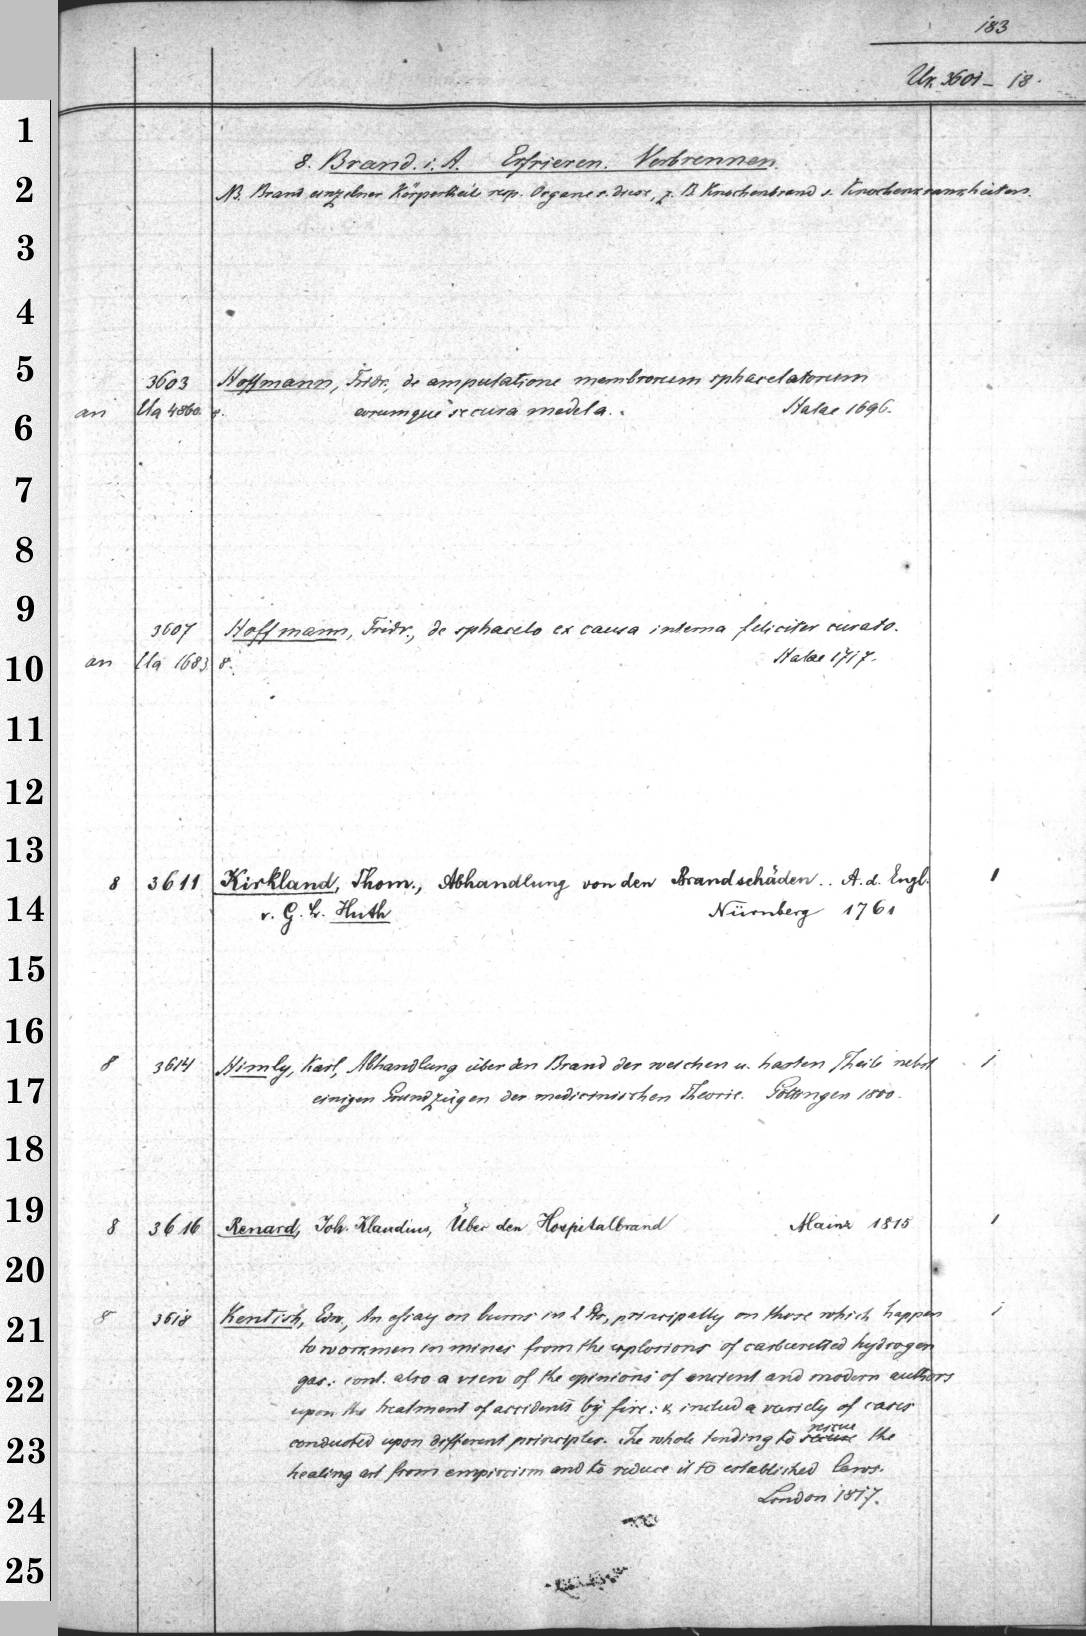 183
Uk 3601 – 18.
1
8. Brand i. A. Erfrieren. Verbrennen.
2
NB. Brand einzelner Körpertheile resp. Organe s. diese, z. B. Knochenbrand s. Knochenkrankheiten.
3
4
5
3603 Hoffmann, Fridr., de amputatione membrorum sphacelatorum
an Ua 4860. 8. eorumque secura medela. Halae 1696.
6
7
8
9
3607 Hoffmann, Fridr., de sphacelo ex causa interna feliciter curato.
an Ua 1683 8. Halae 1717.
10
11
12
13
8 3611 Kirkland, Thom., Abhandlung von den Brandschäden.. A. d. Engl. 1
14
v. G. L. Huth Nürnberg 1761
15
16
8 3614 Himly, Karl, Abhandlung über den Brand der weichen u. harten Theile nebst 1
17
einigen Grundzügen der medicinischen Theorie. Göttingen 1800.
18
19
8 3616 Renard, Joh. Klaudius, Über den Hospitalbrand Mainz 1815 1
20
8 3618 Kentish, Edw., An essay on burns in 2 Pts, principally on those which happen 1
21
to workmen in mines from the explosions of carburetted hydrogen
gas: cont. also a view of the opinions of ancient and modern authors
22
upon the treatment of accidents by fire: & includ a variety of cases
rescue
conducted upon different principles. The whole tending to the
23
healing art from empiricism and to reduce it to established laws.
London 1817.
24
25